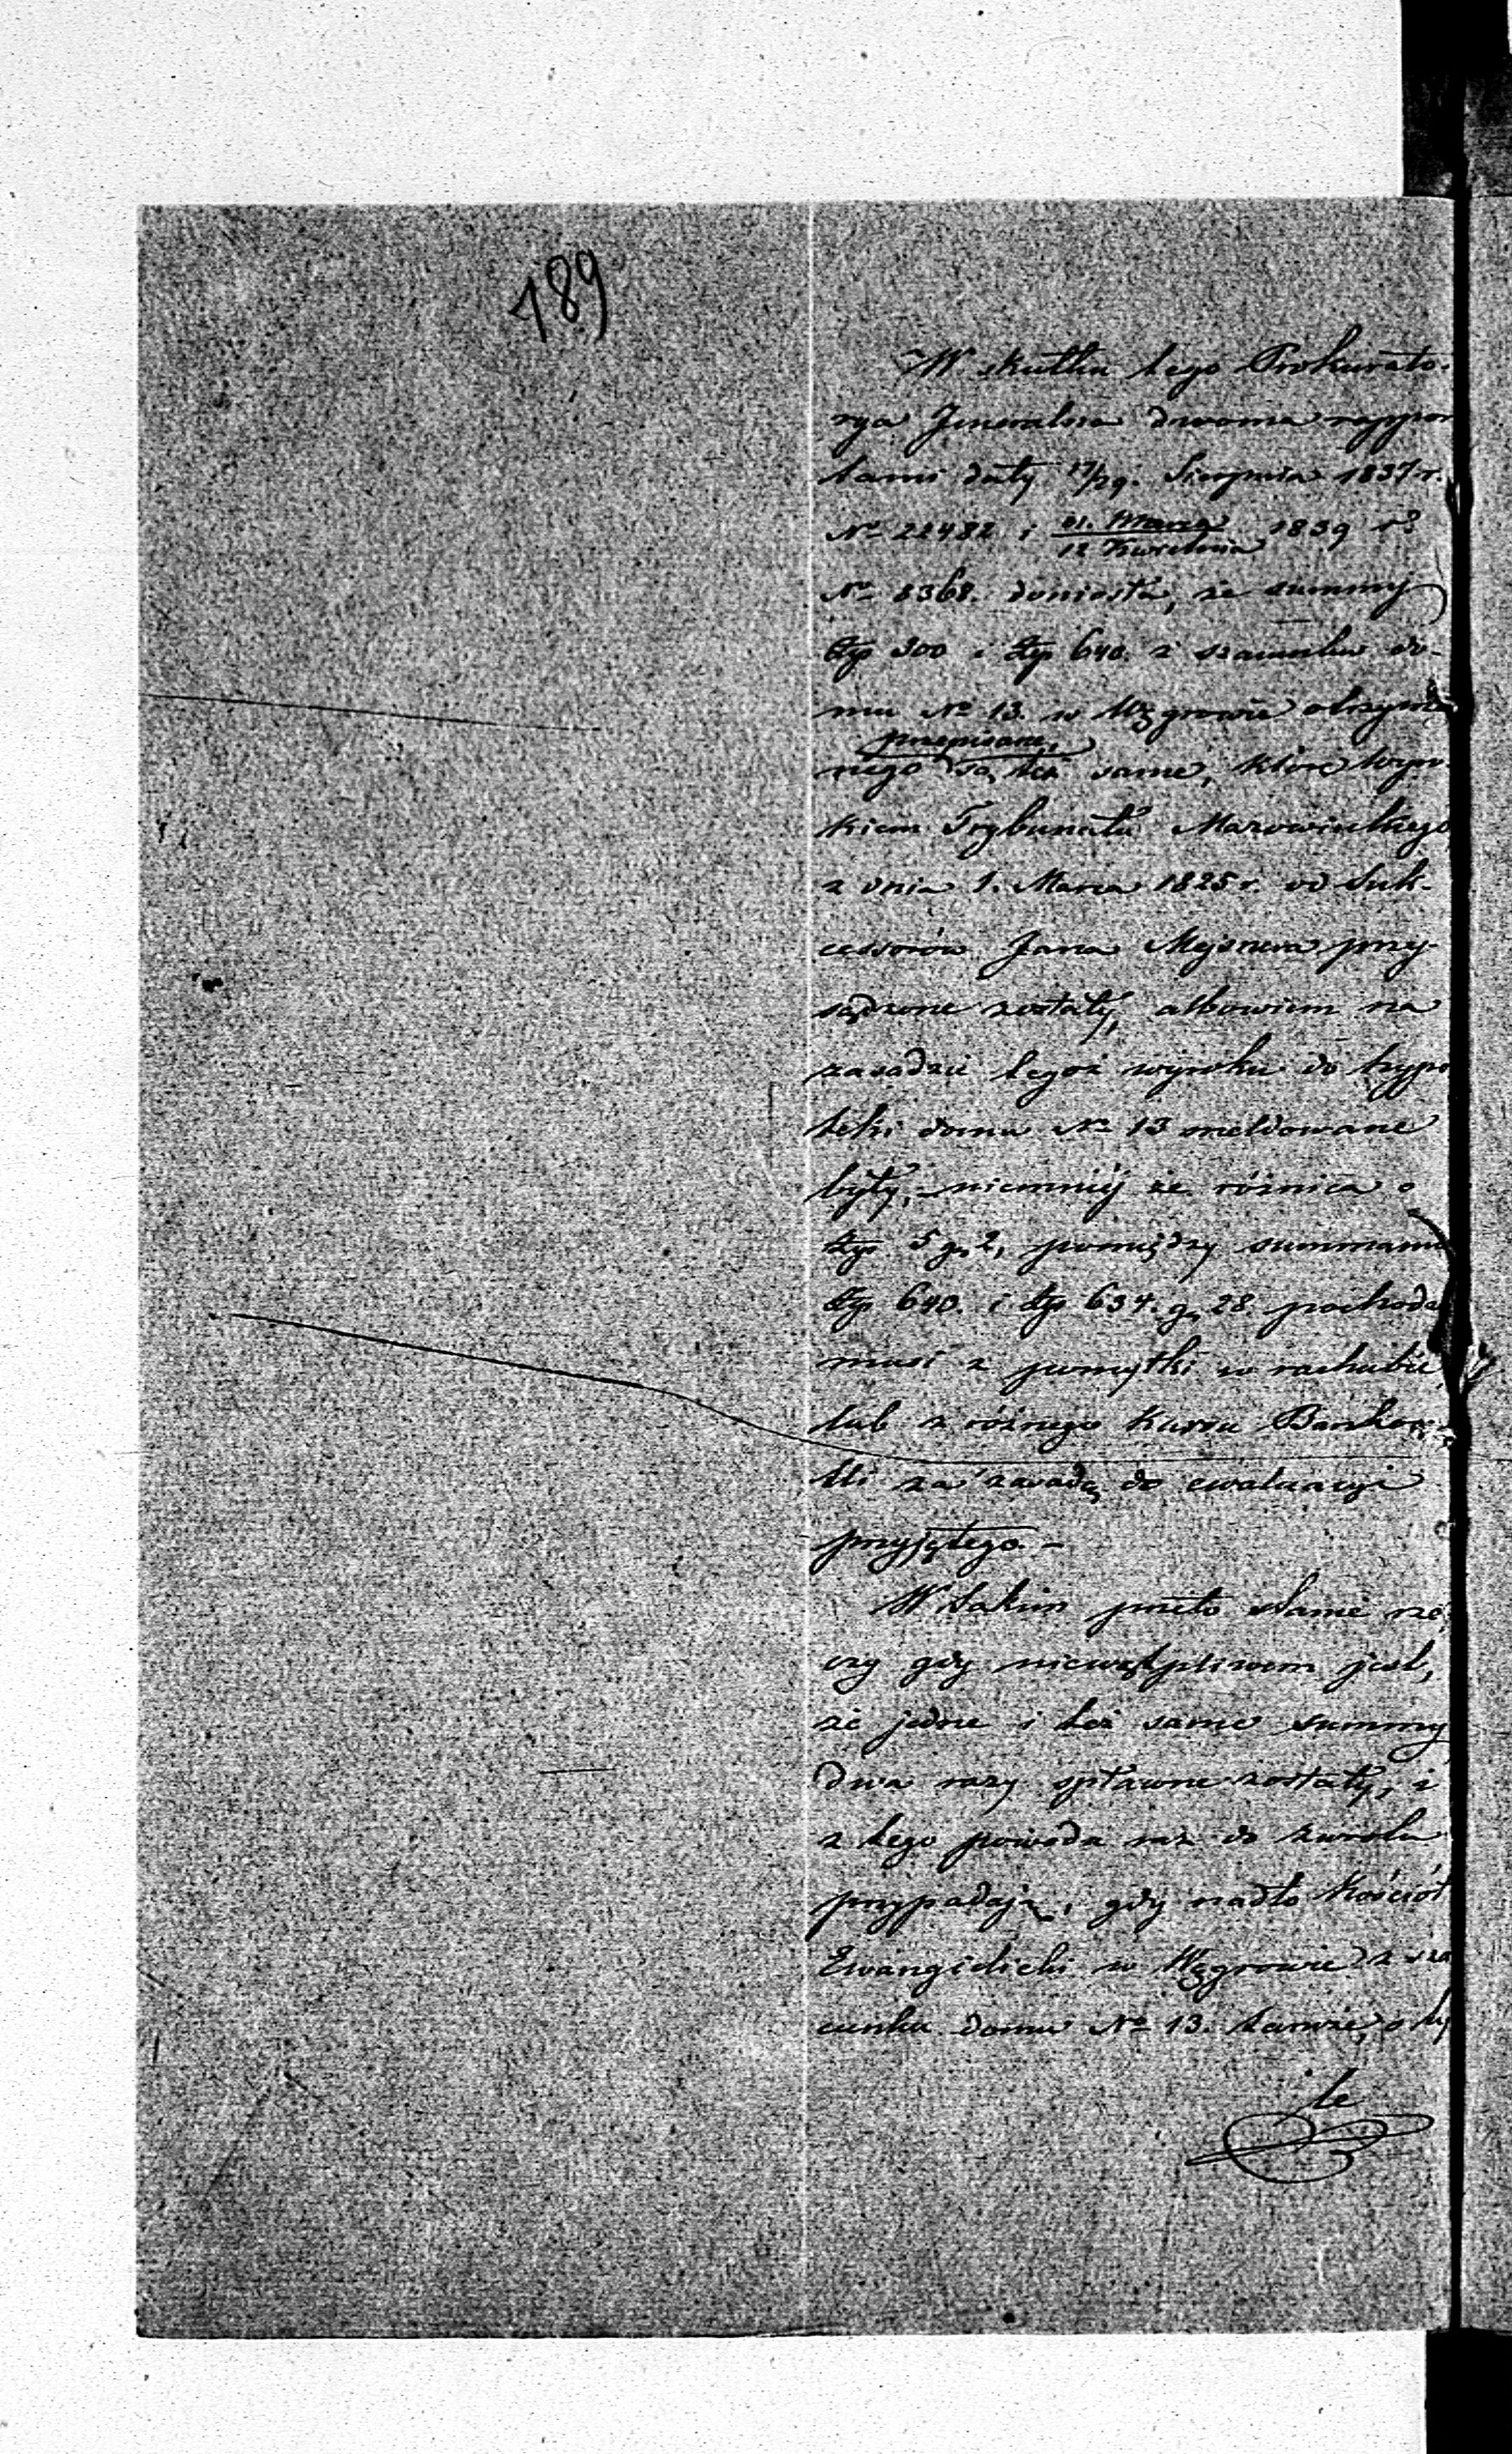 189
W skutku tego Prokurato-
rya Jeneralna dwoma rappor
tami daty 17/29. Sierpnia 1837 r.
No 22482 i 31. Marca / 12 Kwietnia 1839 r.
No 8368. doniosła, że summy
Złp 300 i Złp 640. z szacunku do-
mu No 13. w Węgrowie
przepisane,
nego są też same, które wyro
kiem Trybunału Mazowieckiego
z dnia 1. Marca 1825 r. od Suk-
cessorów Jana Mejsnera przy-
sądzone zostały, albowiem na
zasadzie tegoż wyroku do hypo
teki domu No 13 meldowane
były, niemniéj że różnica o
Złp 5 gr 2, pomiędzy summami
Złp 640. i Złp 634. gr 28. pochodzi
musi z pomyłki w rachubie,
lub z różnego kursu Banko
tli za zasadę do ewaluacyi
przyjętego. -
W takim przeto stanie rze
czy gdy niewątpliwem jest,
że jedne i też same summy
dwa razy spłacone zostały, i
z tego powodu raz do zwrotu
przypadają, gdy nadto Kościół
Ewangielicki w Węgrowie z sza
cunku domu No 13. tamże, o ty
le